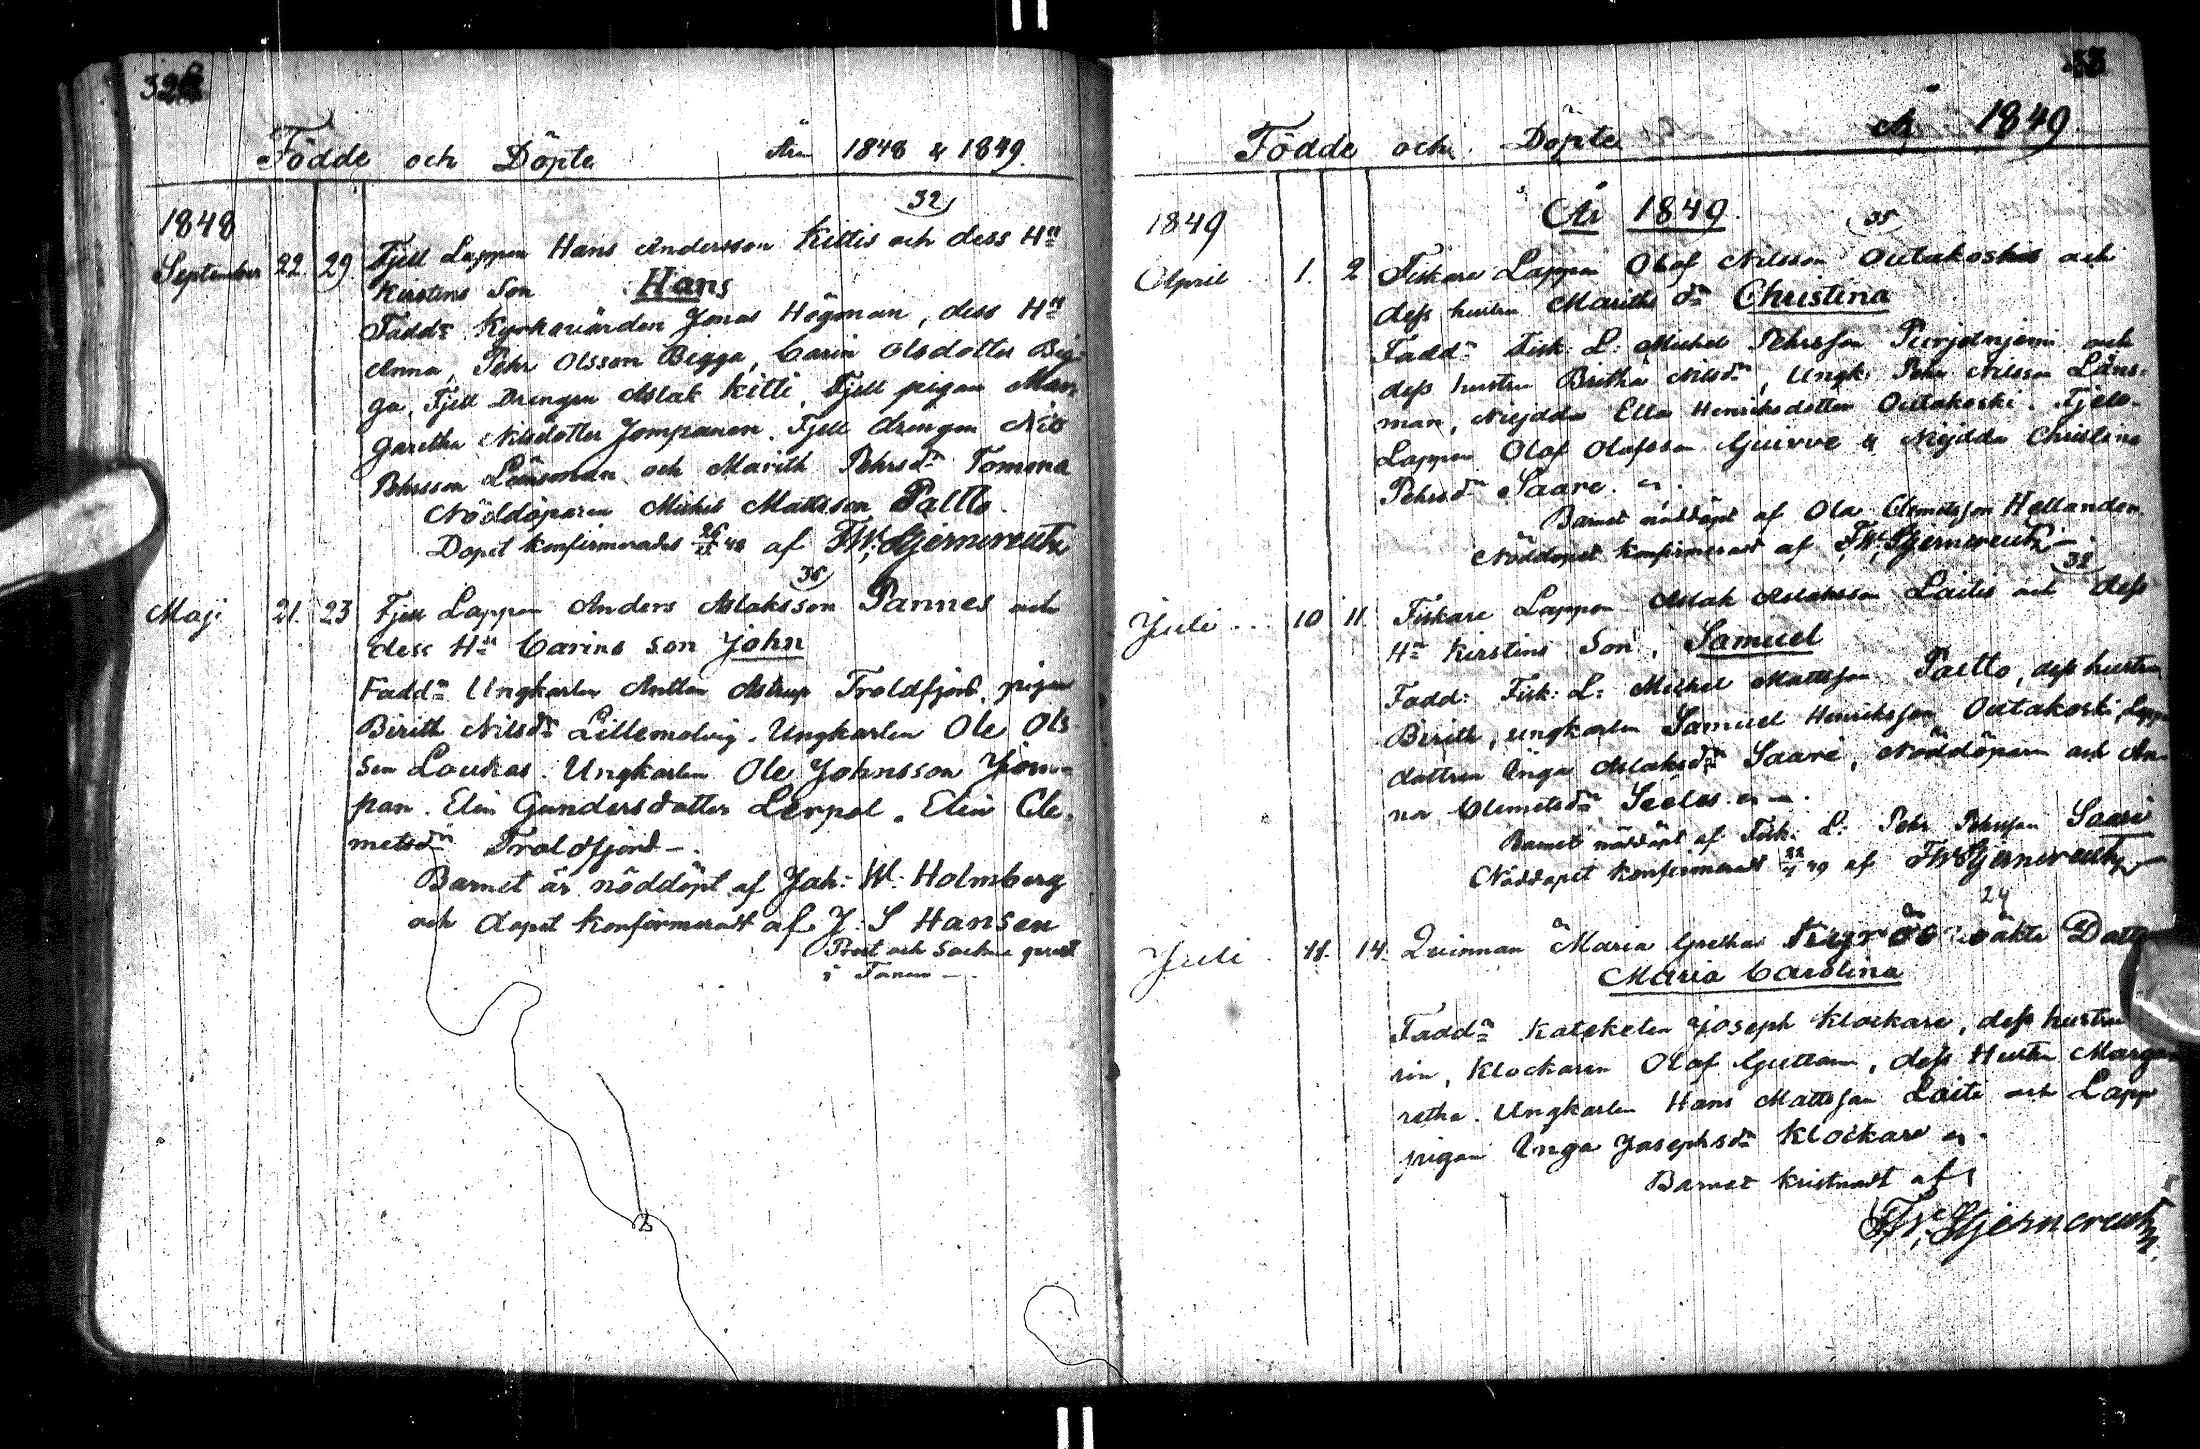 Födde och Döpte Åren 1848 & 1849.
1848
32
September 22 29 Fjell Lappen Hans Andersson Kittis och dess Hu
Kirstins Son Hans
Fadd: Kyrkovärden Jonas Högman, dess Hu
Anna, Pehr Olsson Bigga, Carin Olsdotter Big-
ga, Fjell Drengen Aslak Kitti, Fjell pigan Mar
garetha Nilsdotter Jompanen. Fjell drengen Nils
Pehrsson Länsman och Marith Pehrsd:r Tomma
Nöddöparen Michel Mattsson Paltto.
Dopet konfirmerades af F.W. Stjerncreutz
36
Maji 21. 23 Fjell Lappen Anders Aslaksson Pannes och
dess Hu Carins son John
Fadd:r Ungkarlen Anton Astrup Troldfjord, pigan
Birith Nilsd:r Lillemolvig. Ungkarlen Ole Ols
sen Loukas. Ungkarlen Ole Johnsson Jiom-
pan. Elin Gundersdatter Lerpol. Elin Cle-
metsd:r Troldfjord —.
Barnet är nöddöpt af Joh: W: Holmberg
och dopet konfirmeradt af J: S Hansen
Prost och Sockne prest
i Tanen —
33
Födde och Döpte År 1849.
1849
År 1849.
35
April 1. 2 Fiskare Lappen Olof Nilsson Outakoskis och
dess hustru Mariths dr Christina
Fadd:r Fisk: L: Michel Pehrsson och
dess hustru Britha Nilsd:r, Ungk: Pehr Nilsson Läns-
man, Niejdda Ella Henriksdotter Outakoski. Fjell-
Lappen Olof Olofsson Guivve & Niejdda Christina
Pehrsd:r Saare.
Barnet nöddöpt af Ola Clemetsson Hellander.
Nöddopet konfirmeradt af F.W. Stjerncreutz —.
38
Juli 10 11 Fiskare Lappen Aslak Aslaksson Laitis och dess
Hu Kirstins Son, Samuel
Fadd: Fisk: L: Michel Mattsson Paltto, dess hustru
Birith, ungkarlen Samuel Henriksson Outakoski, Lapp
dottren Inga Aslaksd:r Saare, Nöddöparen och An-
na Clemetsd:r
Barnet nöddöpt af Fisk: L: Pehr Pehrsson Saare
Nöddopet konfirmeradt af F.W. Stjerncreutz
24
Juli 11. 14. Quinnan Maria Gretha oäkta Dott
Maria Carolina
Fadd:r Kateketen Joseph Klockare, dess hustru
rin, Klockaren Olof Guttorm, dess Hustru Marga
retha. Ungkarlen Hans Mattsson Laiti och Lapp
pigan Inga Josephsd:r Klockare
Barnet kristnadt af
F.W. Stjerncreutz